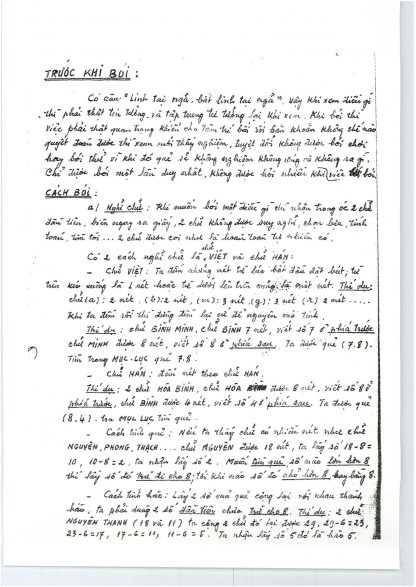 TRƯỚC KHI BÓI :
Có câu "Linh tại ngã, bất linh tại ngã". Vậy khi xem điều gì
thì phải thật tin tưởng, và tập trung tư tưởng lại khi xem. Khi bói thì
việc phải thật quan trọng khiến cho tâm trí bối rối băn khoăn không thể nào
quyết đoán được thì xem mới thấy nghiệm, tuyệt đối không được bói chơi
hay bói thử vì khi đó quẻ sẽ không nghiệm không ứng và không ra gì.
Chỉ được bói một lần duy nhất, không được hỏi nhiều khi việc bói.
CÁCH BÓI :
a) Nghĩ chữ : Khi muốn bói một điều gì thì nhận trong óc 2 chữ
đầu tiên, biên ngay ra giấy, 2 chữ không được suy nghĩ, chọn lựa, tính
toán, tìm tòi ... 2 chữ được coi như là hoàn toàn tự nhiên có.
Có 2 cách nghĩ chữ là chữ VIỆT và chữ HÁN :
- CHỮ VIỆT : Ta đếm những nét từ lúc bắt đầu đặt bút, từ
trên kéo xuống là 1 nét hoặc từ dưới lên trên cũng là một nét. Thí dụ :
chữ (a) : 2 nét, (b) : 2 nét, (m) : 3 nét (g) : 3 nét (r) 2 nét ....
Khi ta đếm rồi thì đừng đếm lại cứ để nguyên mà tính.
Thí dụ : chữ BÌNH MINH, chữ BÌNH 7 nét, viết số 7 ở phía trước
chữ MINH được 8 nét, viết số 8 ở phía sau. Ta được quẻ (7.8).
Tìm trong MỤC-LỤC quẻ 7.8.
- CHỮ HÁN : đếm nét theo chữ HÁN.
Thí dụ : 2 chữ HÒA BÌNH, chữ HÒA được 8 nét, viết số 8 ở
phía trước, chữ BÌNH được 4 nét, viết số 4 ở phía sau. Ta được quẻ
(8.4). tra MỤC LỤC tìm quẻ.
- Cách tính quẻ : Nếu ta thấy chữ có nhiều nét như chữ
NGUYỄN, PHONG, THẠCH .... chữ NGUYỄN được 18 nét, ta lấy số 18-8=
10, 10-8=2. ta nhận lấy số 2. Muốn tìm quẻ số nào lớn hơn 8
thì lấy số đó trừ đi cho 8; tới khi nào số đó nhỏ hơn 8 hay bằng 8.
- Cách tính hào : Lấy 2 số của quẻ cộng lại với nhau thành
hào, ta phải dùng 2 số đầu tiên chưa trừ cho 8. Thí dụ : 2 chữ
NGUYỄN THANH (18 và 11) ta cộng 2 chữ đó lại được 29, 29-6=23,
23-6=17, 17-6=11, 11-6=5. Ta nhận lấy số 5 đó là hào 5.